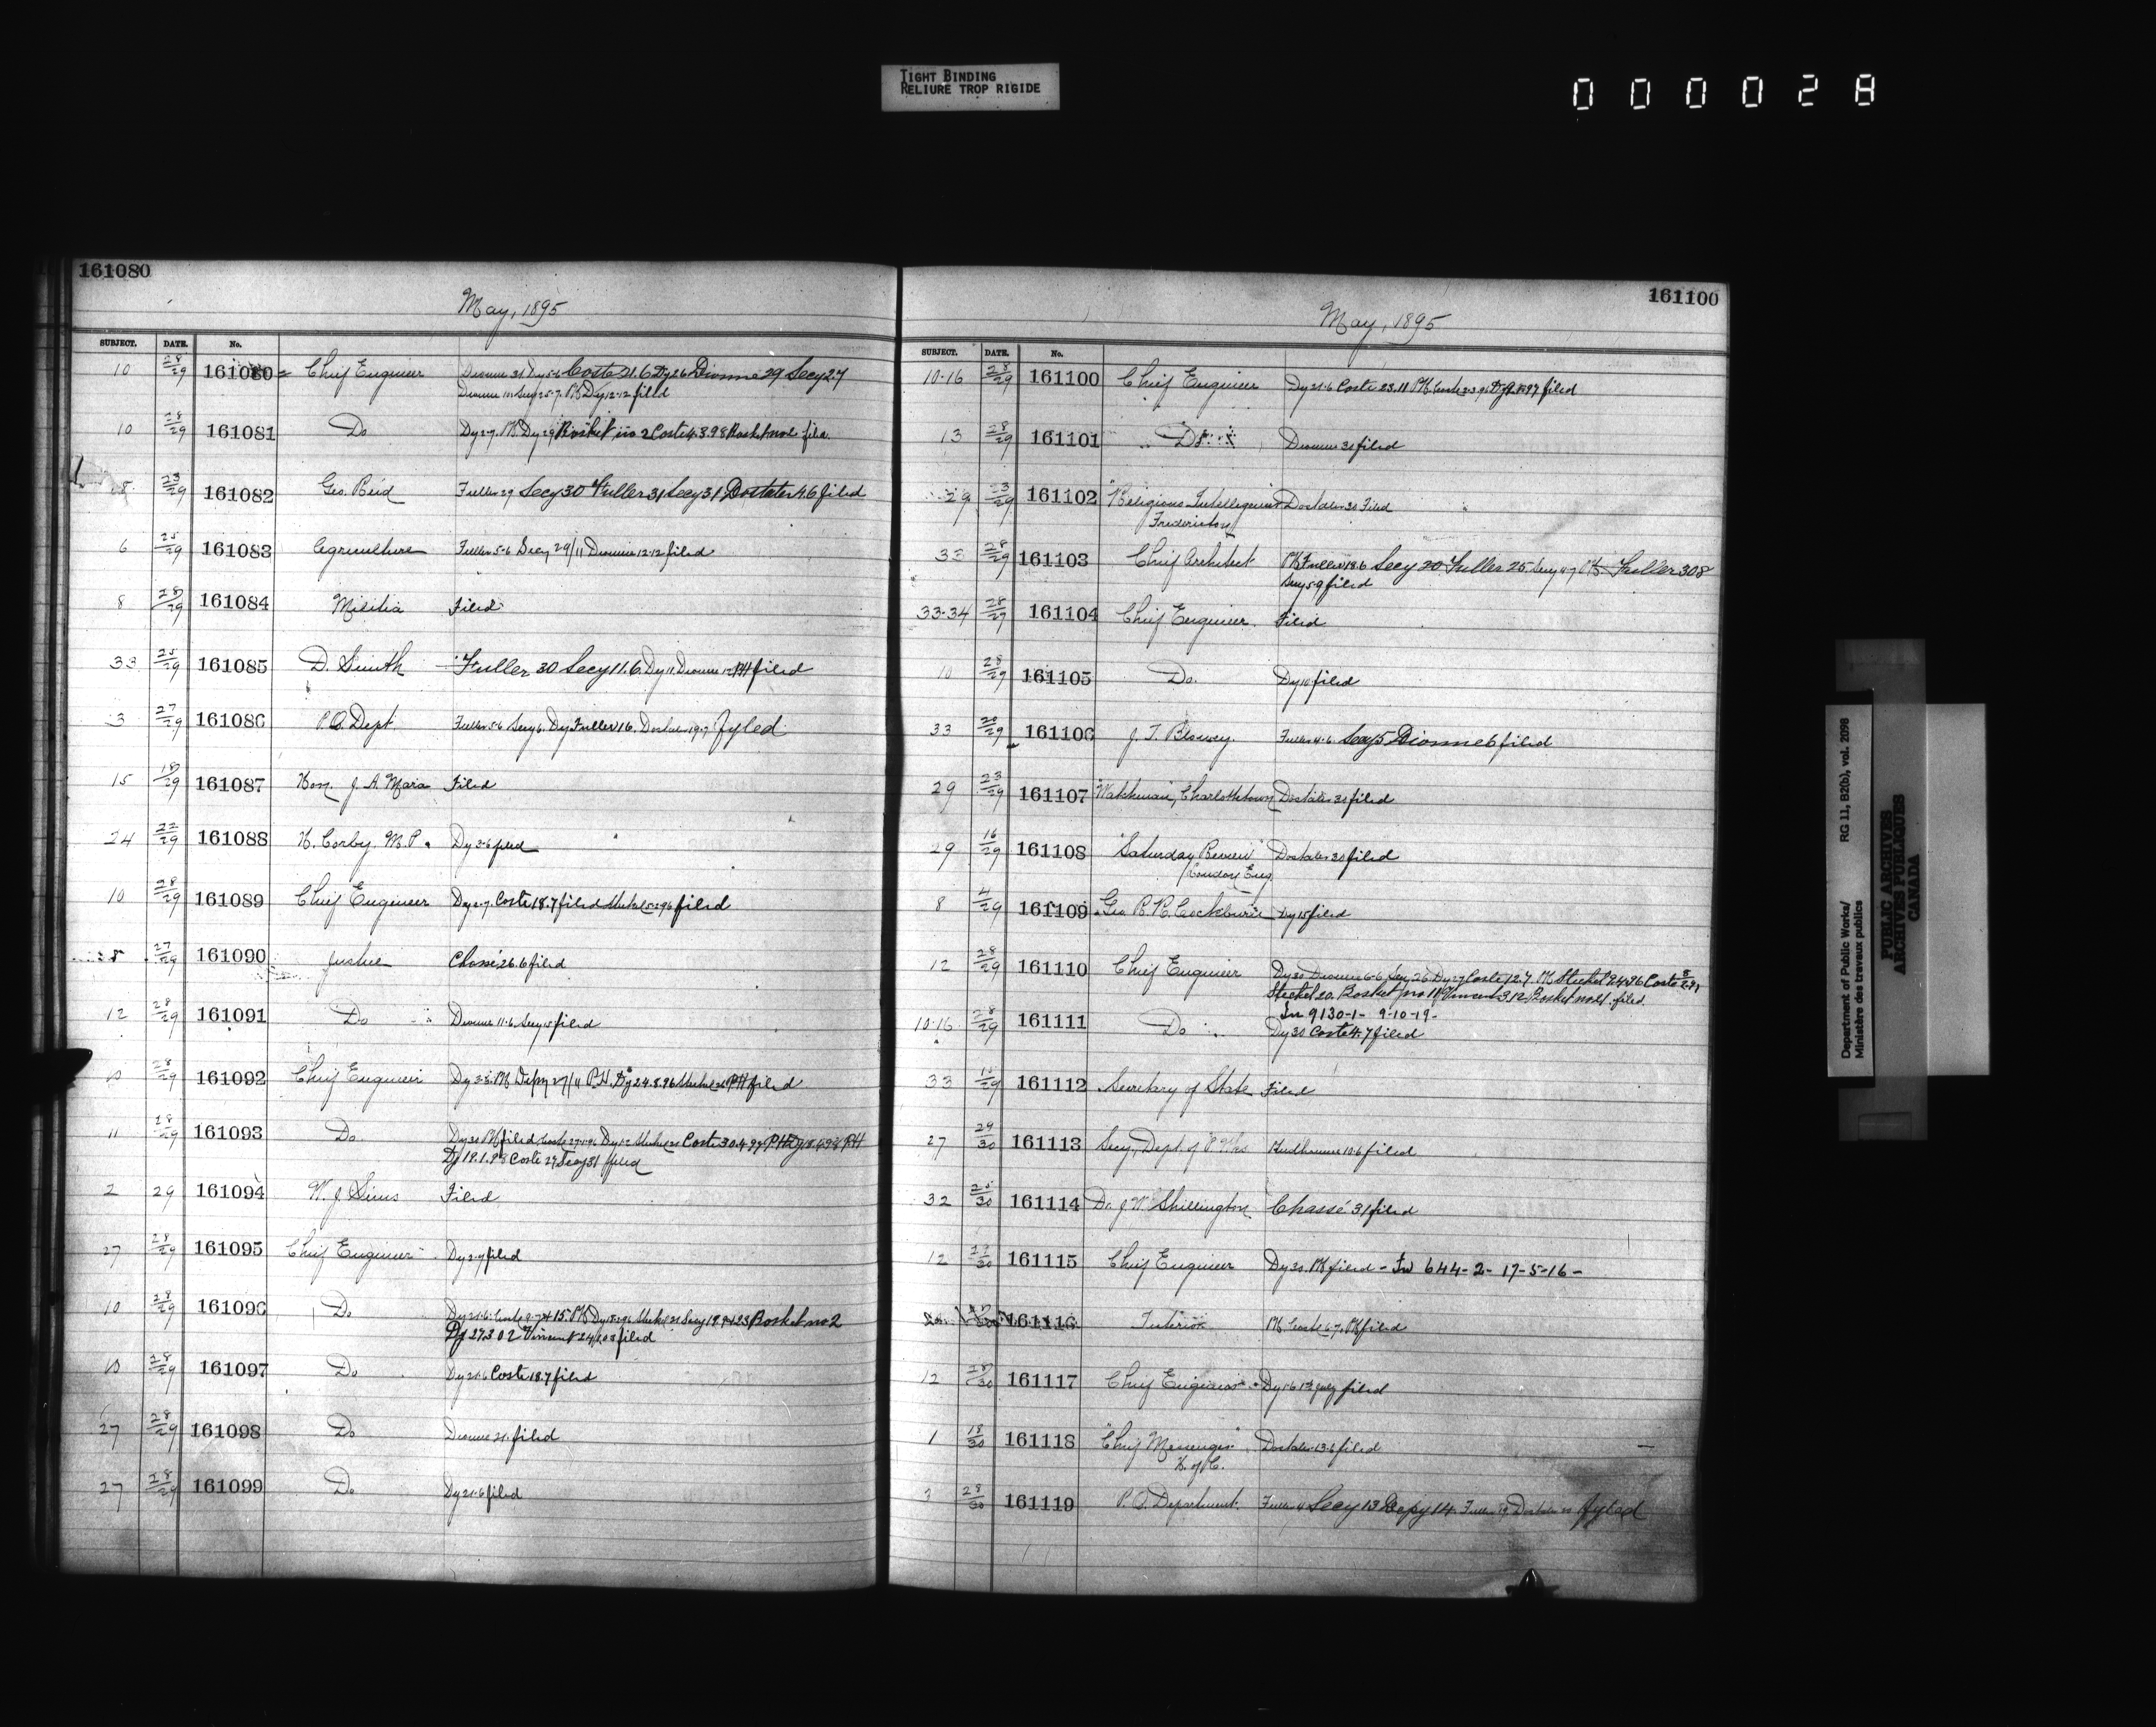 TIGHT BINDING
RELIURE TROP RIGIDE
000028
161080
May, 1895
SUBJECT. DATE. No.
10 28/29 161080 Chief Engineer Dionne 31 Dy 5-6 Coste 21.6 Dy 26 Dionne 29 Secy 2.7
Dy 12-12 filed
10 28/29 161081 Do Dy 2-7. PK Dy 29 Basket no 2 Coste 4.3.98 Basket no 2 filed
8 23/29 161082 Geo. Reid Fuller 29 Secy 30 Fuller 31 Secy 31 Dostaler 4.6 filed
6 25/29 161083 Agriculture Fuller 5-6 Secy 29/11 Dionne 12-12 filed
8 28/29 161084 Militia Filed
33 25/29 161085 D. Smith Fuller 30 Secy 11.6. Dy 11. Dionne 12 PH filed
3 27/29 161086 P.O. Dept. Fuller 5-6 Secy 6. Dy Fuller 16. Dostaler 19-7 fyled
15 18/29 161087 Hon. J. A. Mara Filed
24 22/29 161088 H. Corby M.P. Dy 3-6 filed
10 28/29 161089 Chief Engineer Dy 2-7. Coste 18.7 filed filed
8 27/29 161090 Justice Chassé 26.6 filed
12 28/29 161091 Do Dionne 11-6. Secy 15 filed
10 28/29 161092 Chief Engineer 27/11 P.H. Dy 24.8.96 filed
11 28/29 161093 Do Dy 30 PK filed Coste 30.4.97 PH
Dy 19.1.98 Coste 27 Secy 31 filed
2 29 161094 W. J. Sims Filed
27 28/29 161095 Chief Engineer Dy 2-7 filed
10 28/29 161096 Do Dy 21-6 Basket no 2
Dy 27.3.02 Vincent 24/1.03 filed
10 28/29 161097 Do Dy 21-6 Coste 18.7 filed
27 28/29 161098 Do Dionne 21. filed
27 28/29 161099 Do Dy 21-6 filed
161100
May, 1895
SUBJECT. DATE. No.
10-16 28/29 161100 Chief Engineer Dy 21-6 Coste 23.11 PK filed
13 28/29 161101 Do Dionne 30 filed
29 23/29 161102 "Religious Intelligencer" Dostaler 30 Filed
Fredericton
33 28/29 161103 Chief Architect PK Fuller 18.6 Secy 20 Fuller 25. Secy 4-7 Fuller 30.8
Secy 5-9 filed
33-34 28/29 161104 Chief Engineer. Filed
10 28/29 161105 Do. Dy 10 filed
33 161106 Fuller 4-6. Secy 5 Dionne 6 filed
29 23/29 161107 "Watchman", Charlottetown Dostaler 30 filed
29 16/29 161108 "Saturday Review" Dostaler 30 filed
London Eng.
8 4/29 161109 Geo R. R. Cockburn Dy 15 filed
12 28/29 161110 Chief Engineer Dy 30 Dionne 6-6. Secy 26 Dy 27 Coste 12.7. PK Steckel
Steckel 20. Basket no 11 Vincent Basket no 21. filed.
In 9130-1- 9-10-19-
10-16 28/29 161111 Do Dy 30 Coste 4.7 filed
33 161112 Secretary of State Filed
27 29/30 161113 Secy, Dept. of P. Wks 10-6 filed
32 25/30 161114 Dr. J. W. Shillington Chassé 31 filed
12 161115 Chief Engineer Dy 30. PK filed - In 644-2- 17-5-16-
161116 Interior PK Coste 6-7. PK filed
12 28/30 161117 Chief Engineer filed
1 18/30 161118 "Chief Messenger" Dostaler 13-6 filed
H. of C.
3 28/30 161119 P. O. Department. Fuller 4 Secy 13 14. fyled
Department of Public Works/ RG 11, B2(b), vol. 2098
Ministère des travaux publics
PUBLIC ARCHIVES
ARCHIVES PUBLIQUES
CANADA